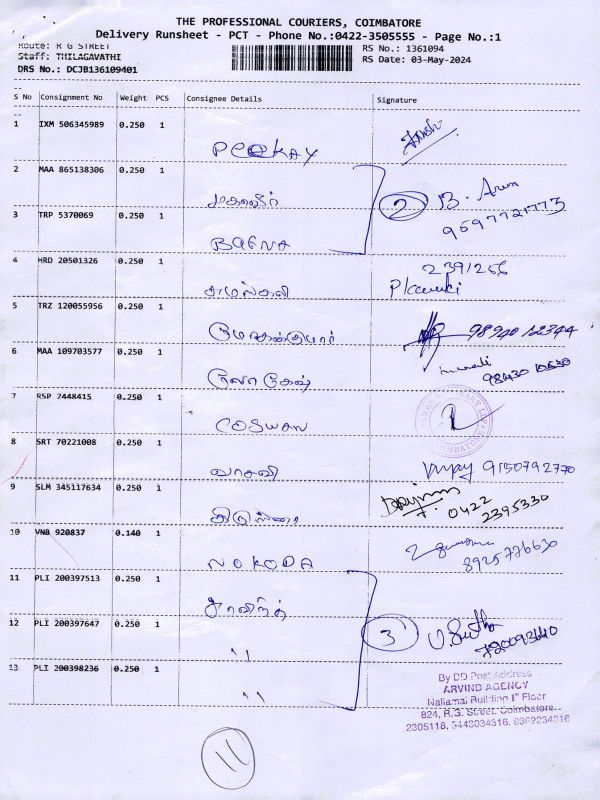 THE PROFESSIONAL COURIERS, COIMBATORE
Delivery Runsheet - PCT - Phone No.:0422-3505555 - Page No.:1
Route: R G STREET
Staff: THILAGAVATHI
DRS No.: DCJB136109401
RS No.: 1361094
RS Date: 03-May-2024
S No Consignment No Weight PCS Consignee Details Signature
1 IXM 506345989 0.250 1
PEEKAY
2 MAA 865138306 0.250 1
மகாவீர்
2 B. Arun
9597721773
3 TRP 5370069 0.250 1
BAGNA
4 HRD 20501326 0.250 1
2391266
சுமங்கலி
5 TRZ 120055956 0.250 1
மோகன்குமார்
98940 12344
6 MAA 109703577 0.250 1
லோகேஷ்
7 RSP 2448415 0.250 1
COSWAN
COIMBATORE
8 SRT 70221008 0.250 1
வாசவி
Vijay 9150792770
9 SLM 345117634 0.250 1
0422
2395330
10 VNB 920837 0.140 1
NOKODA
8925776630
11 PLI 200397513 0.250 1
12 PLI 200397647 0.250 1
"
3
13 PLI 200398236 0.250 1
"
By DD Post Address
ARVIND AGENCY
Nallamai Building 1st Floor
824, R.G. Street, Coimbatore
2305118, 3443034316, 9362234316
11